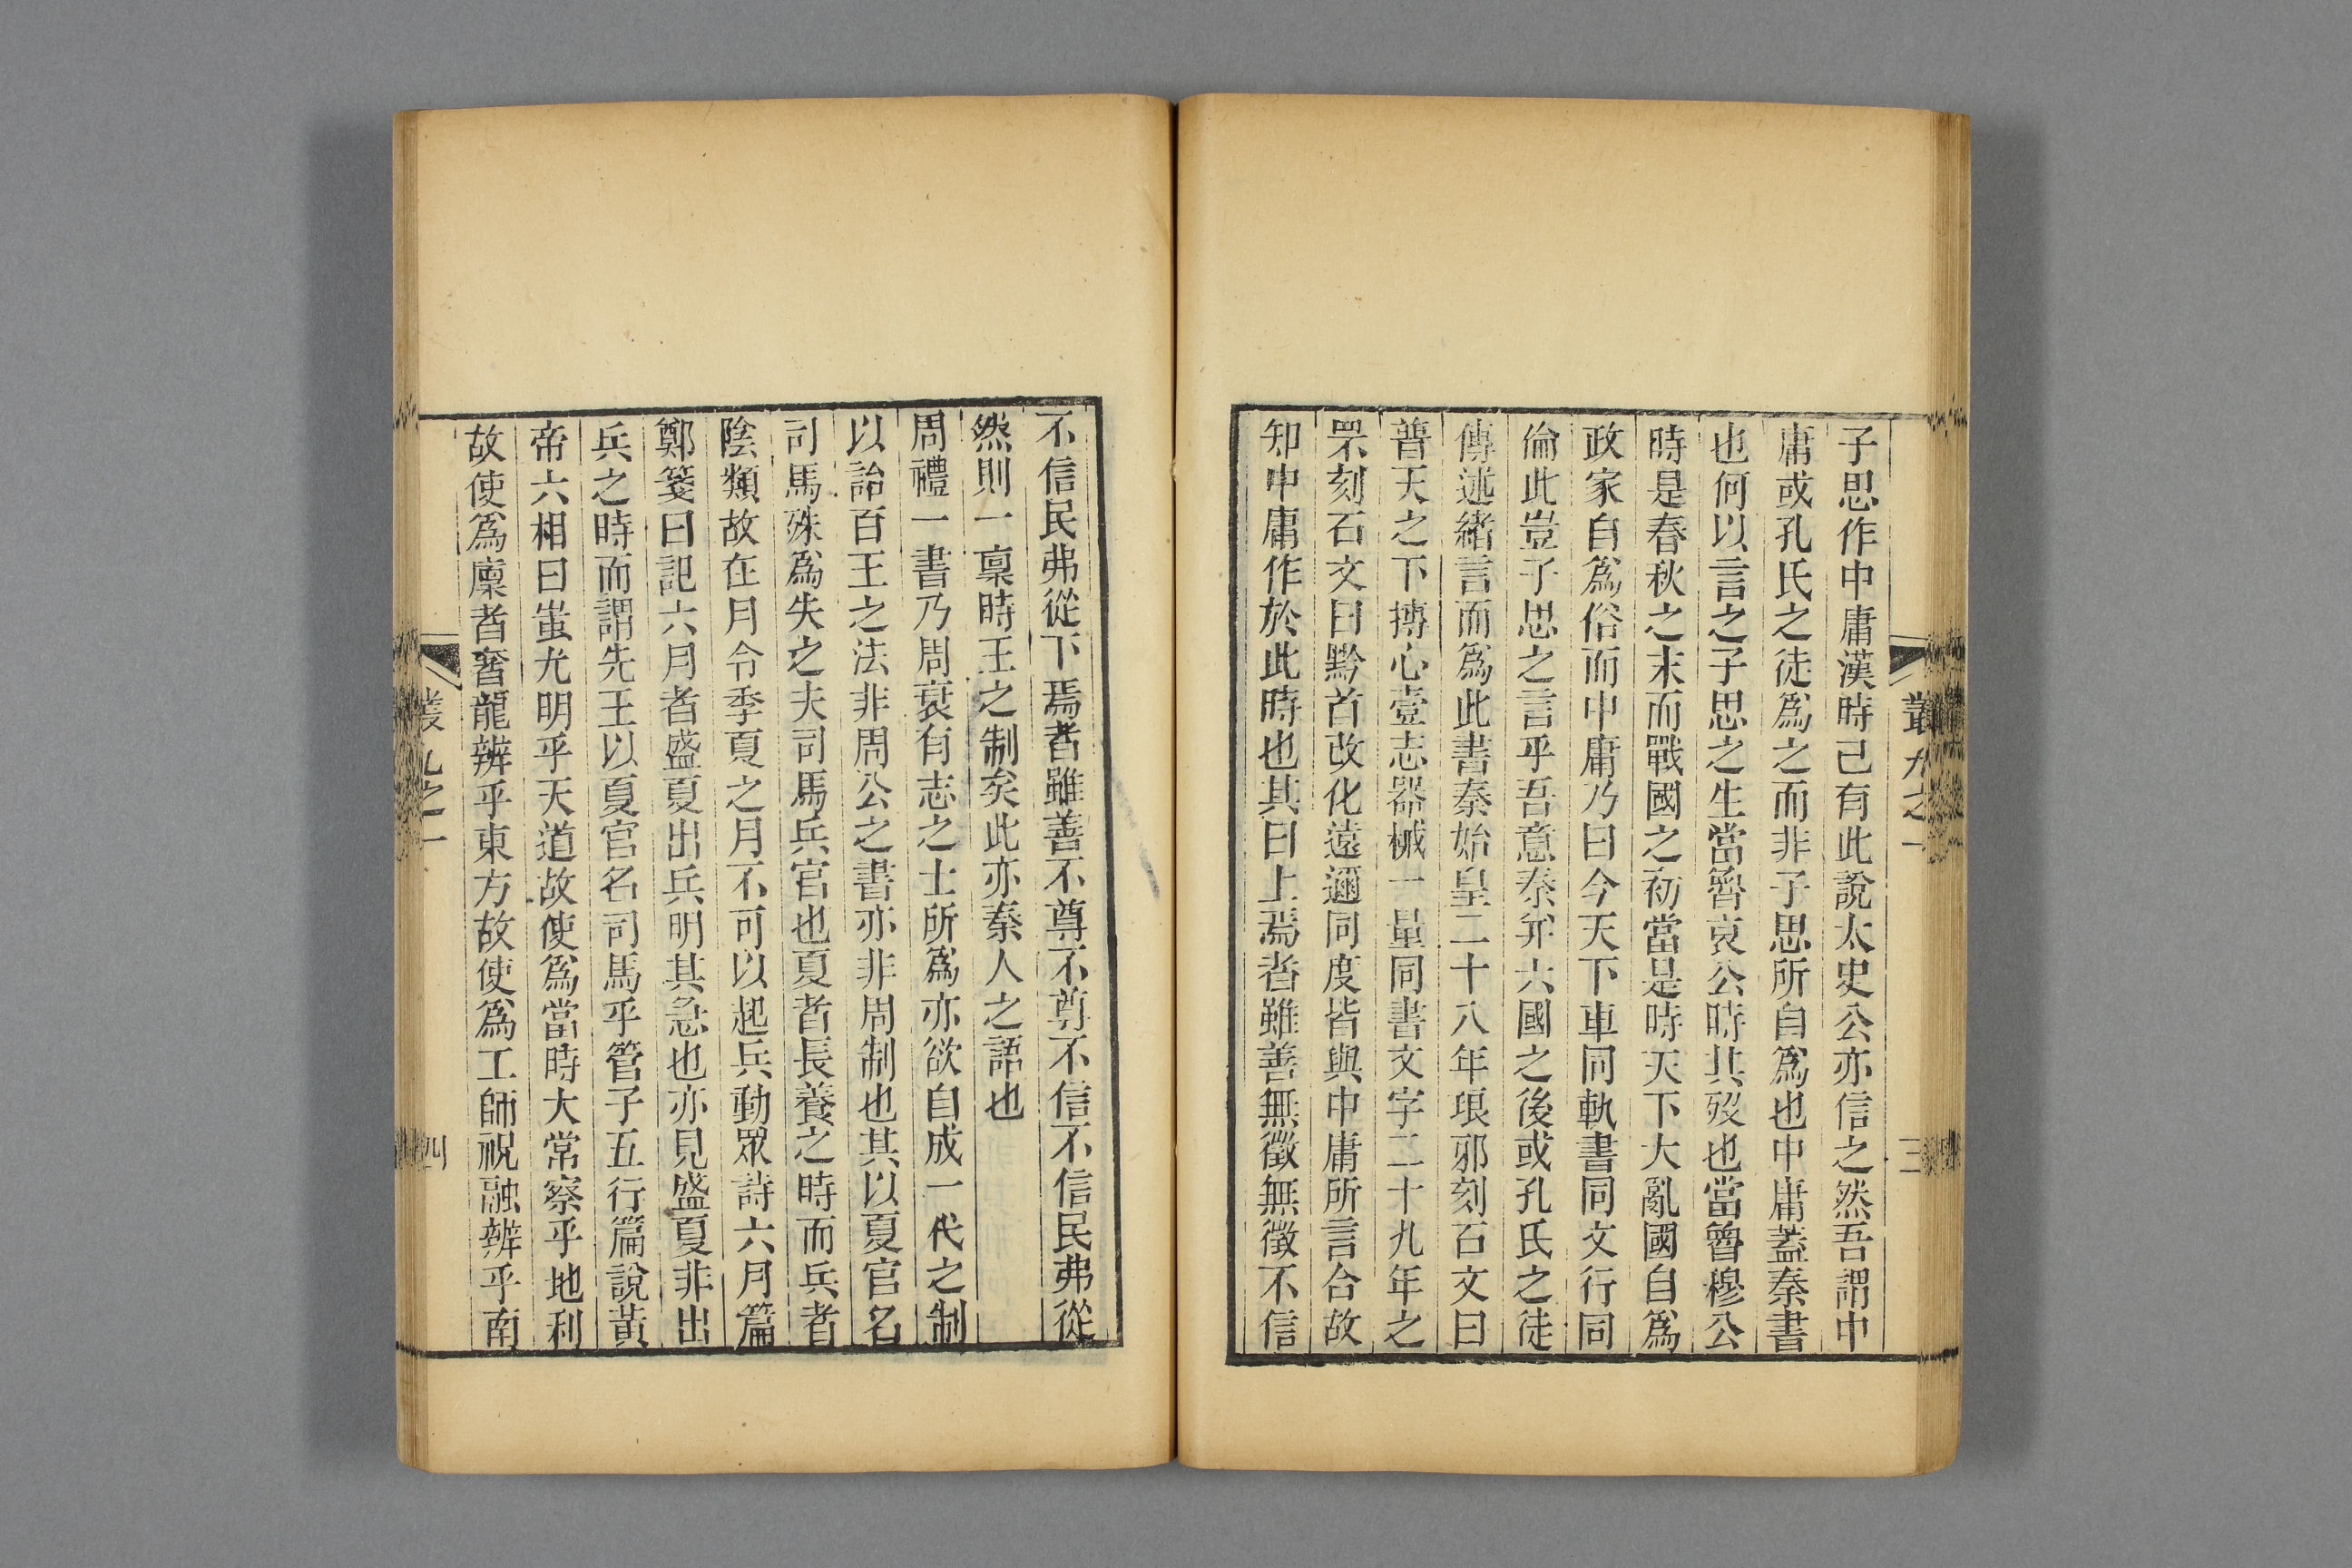 叢九之一
三
子思作中庸漢時已有此說太史公亦信之然吾謂中
庸或孔氏之徒爲之而非子思所自爲也中庸蓋秦書
也何以言之子思之生當魯哀公時其歿也當魯穆公
時是春秋之末而戰國之初當是時天下大亂國自爲
政家自爲俗而中庸乃曰今天下車同軌書同文行同
倫此豈子思之言乎吾意秦幷六國之後或孔氏之徒
傳述緒言而爲此書秦始皇二十八年琅邪刻石文曰
普天之下摶心壹志器械一量同書文字二十九年之
罘刻石文曰黔首改化遠邇同度皆與中庸所言合故
知中庸作於此時也其曰上焉者雖善無徵無徵不信
不信民弗從下焉者雖善不尊不尊不信不信民弗從
然則一稟時王之制矣此亦秦人之語也
周禮一書乃周衰有志之士所爲亦欲自成一代之制
以詒百王之法非周公之書亦非周制也其以夏官名
司馬殊爲失之夫司馬兵官也夏者長養之時而兵者
陰類故在月令季夏之月不可以起兵動眾詩六月篇
鄭箋曰記六月者盛夏出兵明其急也亦見盛夏非出
兵之時而謂先王以夏官名司馬乎管子五行篇說黃
帝六相曰蚩尤明乎天道故使爲當時大常察乎地利
故使爲廩者奢龍辨乎東方故使爲工師祝融辨乎南
叢九之一
四